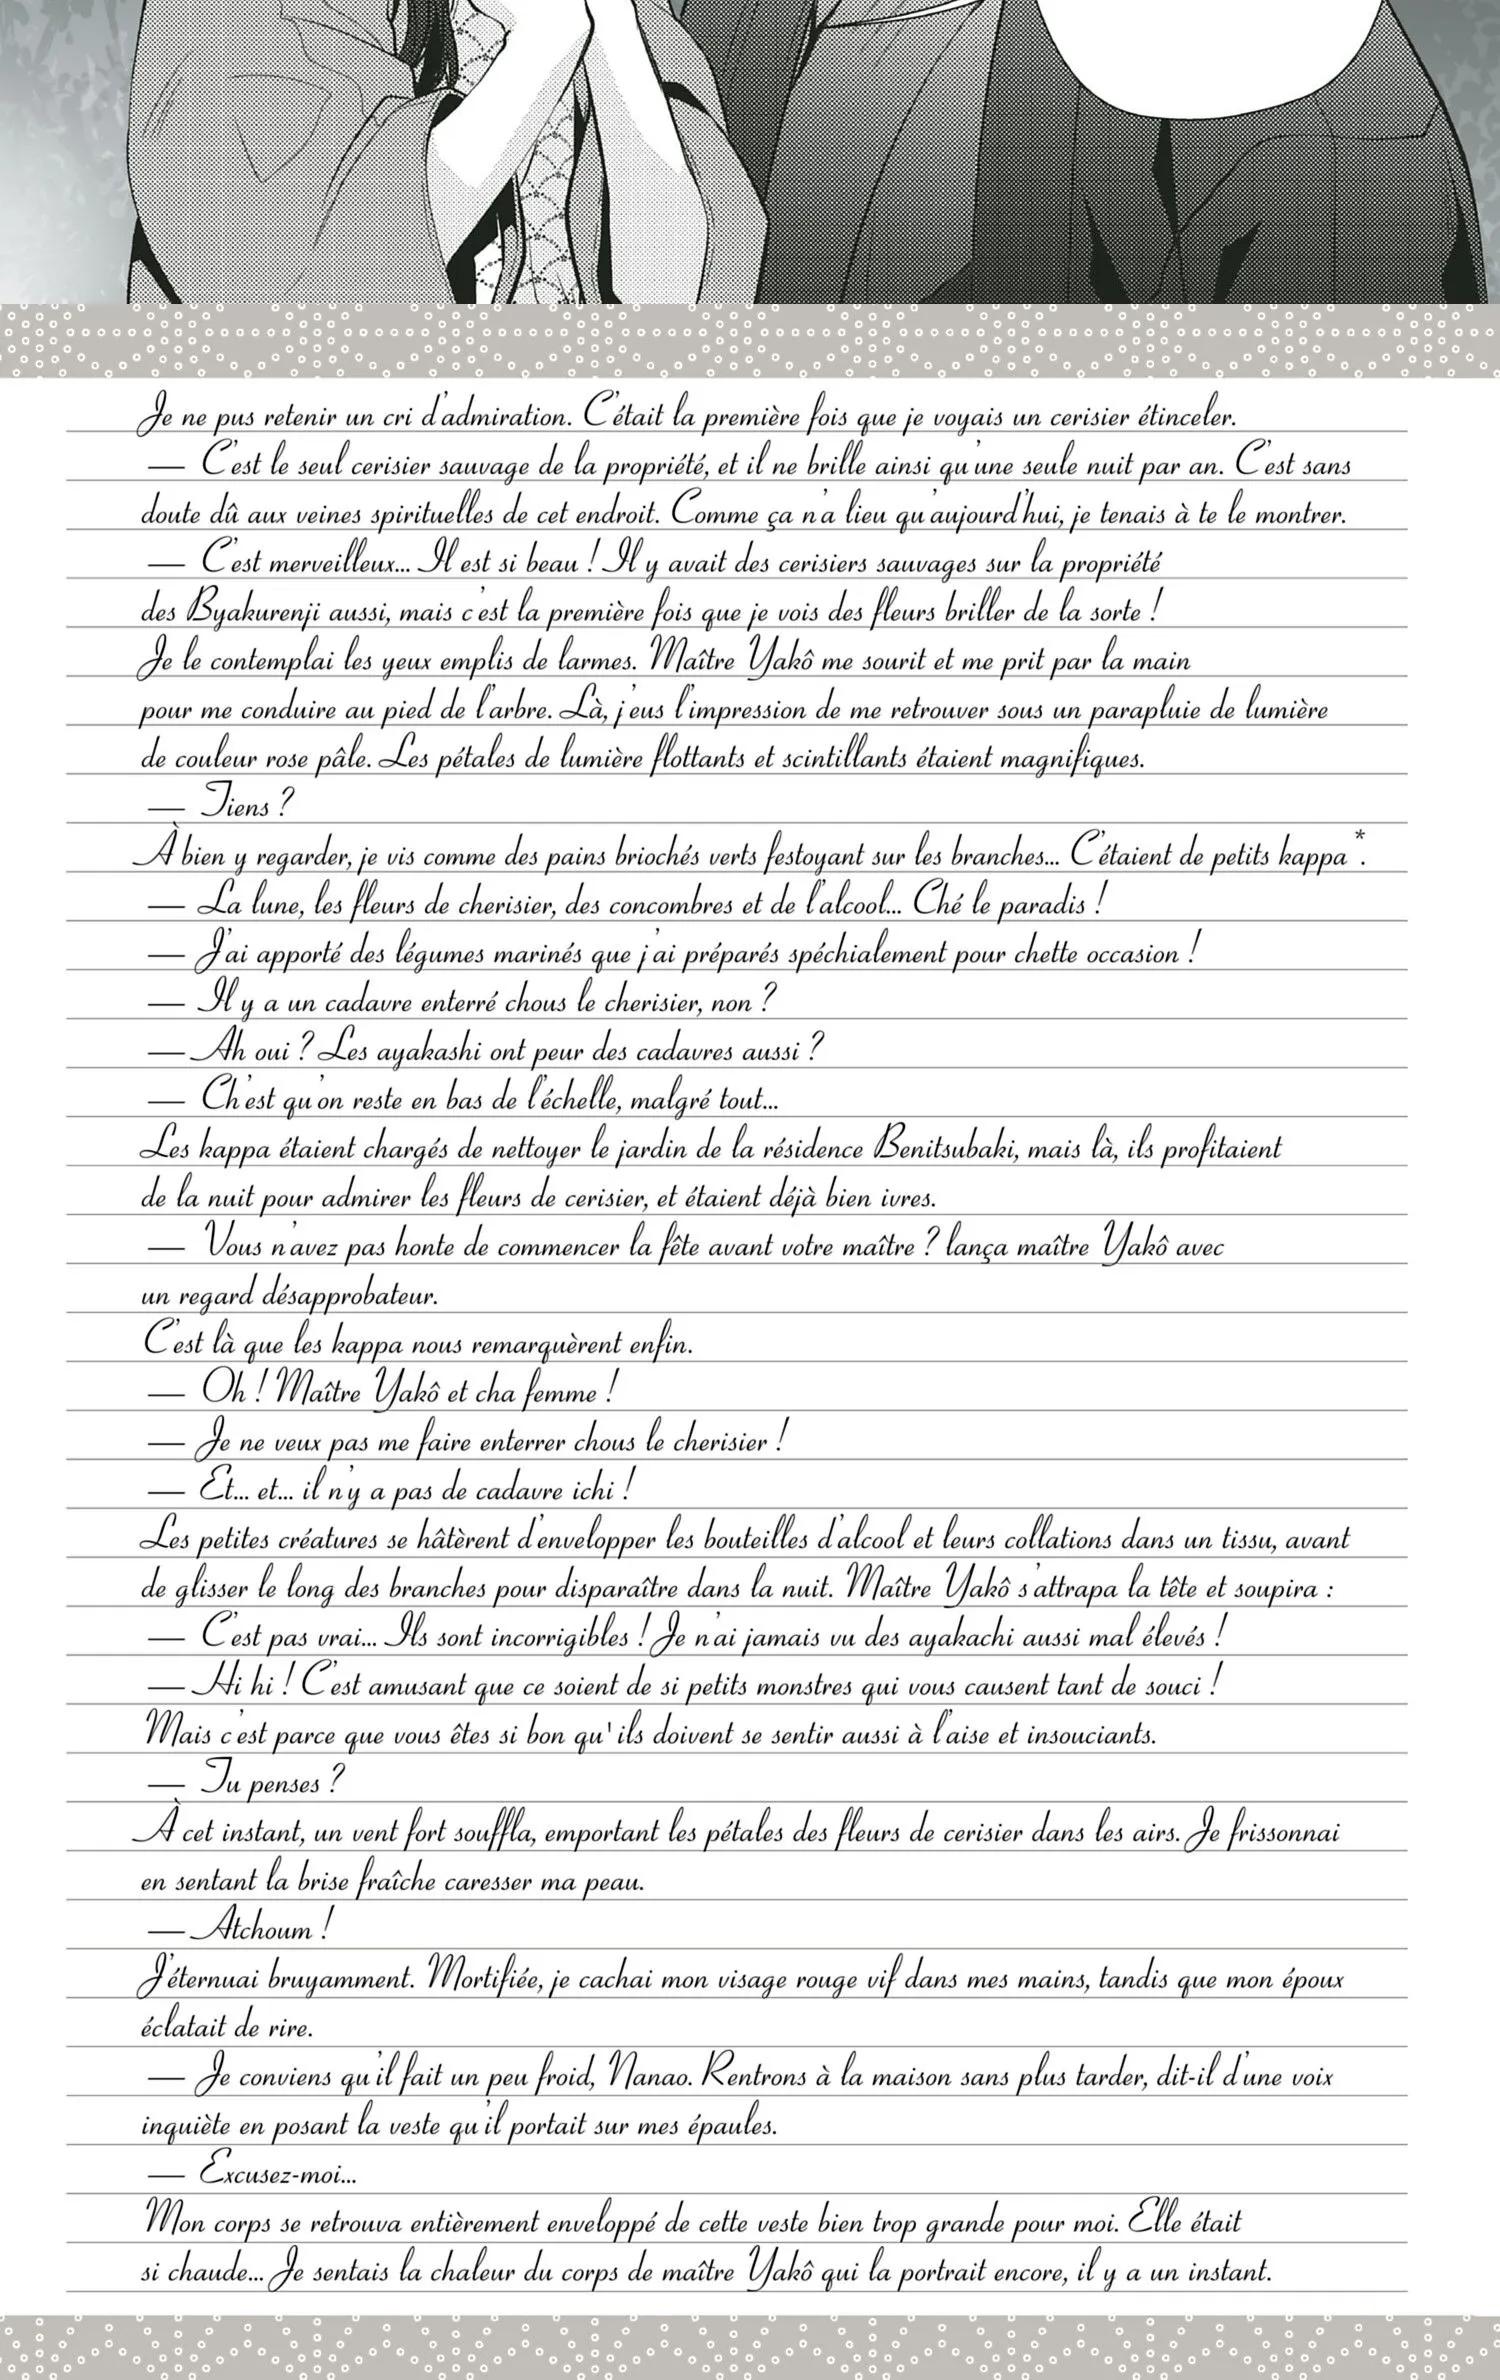 Je ne pus retenir un cri d'admiration. C'était la première fois que je voyais un cerisier étinceler.
— C'est le seul cerisier sauvage de la propriété, et il ne brille ainsi qu'une seule nuit par an. C'est sans
doute dû aux veines spirituelles de cet endroit. Comme ça n'a lieu qu'aujourd'hui, je tenais à te le montrer.
— C'est merveilleux... Il est si beau ! Il y avait des cerisiers sauvages sur la propriété
des Byakurenji aussi, mais c'est la première fois que je vois des fleurs briller de la sorte !
Je le contemplai les yeux emplis de larmes. Maître Yakô me sourit et me prit par la main
pour me conduire au pied de l'arbre. Là, j'eus l'impression de me retrouver sous un parapluie de lumière
de couleur rose pâle. Les pétales de lumière flottants et scintillants étaient magnifiques.
— Tiens ?
À bien y regarder, je vis comme des pains briochés verts festoyant sur les branches... C'étaient de petits kappa*.
— La lune, les fleurs de cherisier, des concombres et de l'alcool... Ché le paradis !
— J'ai apporté des légumes marinés que j'ai préparés spéchialement pour chette occasion !
— Il y a un cadavre enterré chous le cherisier, non ?
— Ah oui ? Les ayakashi ont peur des cadavres aussi ?
— Ch'est qu'on reste en bas de l'échelle, malgré tout...
Les kappa étaient chargés de nettoyer le jardin de la résidence Benitsubaki, mais là, ils profitaient
de la nuit pour admirer les fleurs de cerisier, et étaient déjà bien ivres.
— Vous n'avez pas honte de commencer la fête avant votre maître ? lança maître Yakô avec
un regard désapprobateur.
C'est là que les kappa nous remarquèrent enfin.
— Oh ! Maître Yakô et cha femme !
— Je ne veux pas me faire enterrer chous le cherisier !
— Et... et... il n'y a pas de cadavre ichi !
Les petites créatures se hâtèrent d'envelopper les bouteilles d'alcool et leurs collations dans un tissu, avant
de glisser le long des branches pour disparaître dans la nuit. Maître Yakô s'attrapa la tête et soupira :
— C'est pas vrai... Ils sont incorrigibles ! Je n'ai jamais vu des ayakachi aussi mal élevés !
— Hi hi ! C'est amusant que ce soient de si petits monstres qui vous causent tant de souci !
Mais c'est parce que vous êtes si bon qu'ils doivent se sentir aussi à l'aise et insouciants.
— Tu penses ?
À cet instant, un vent fort souffla, emportant les pétales des fleurs de cerisier dans les airs. Je frissonnai
en sentant la brise fraîche caresser ma peau.
— Atchoum !
J'éternuai bruyamment. Mortifiée, je cachai mon visage rouge vif dans mes mains, tandis que mon époux
éclatait de rire.
— Je conviens qu'il fait un peu froid, Nanao. Rentrons à la maison sans plus tarder, dit-il d'une voix
inquiète en posant la veste qu'il portait sur mes épaules.
— Excusez-moi...
Mon corps se retrouva entièrement enveloppé de cette veste bien trop grande pour moi. Elle était
si chaude... Je sentais la chaleur du corps de maître Yakô qui la portrait encore, il y a un instant.